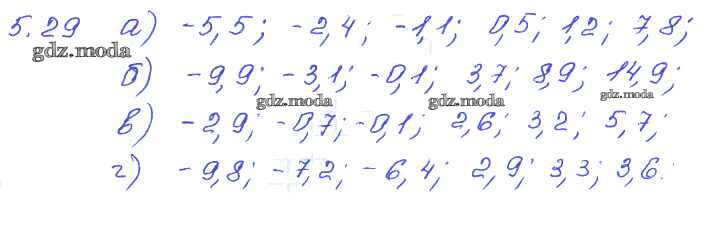 5.29 а) -5,5; -2,4; -1,1; 0,5; 1,2; 7,8;
gdz.moda
б) -9,9; -3,1; -0,1; 3,7; 8,9; 14,9;
gdz.moda gdz.moda gdz.moda
в) -2,9; -0,7; -0,1; 2,6; 3,2; 5,7;
г) -9,8; -7,2; -6,4; 2,9; 3,3; 3,6.